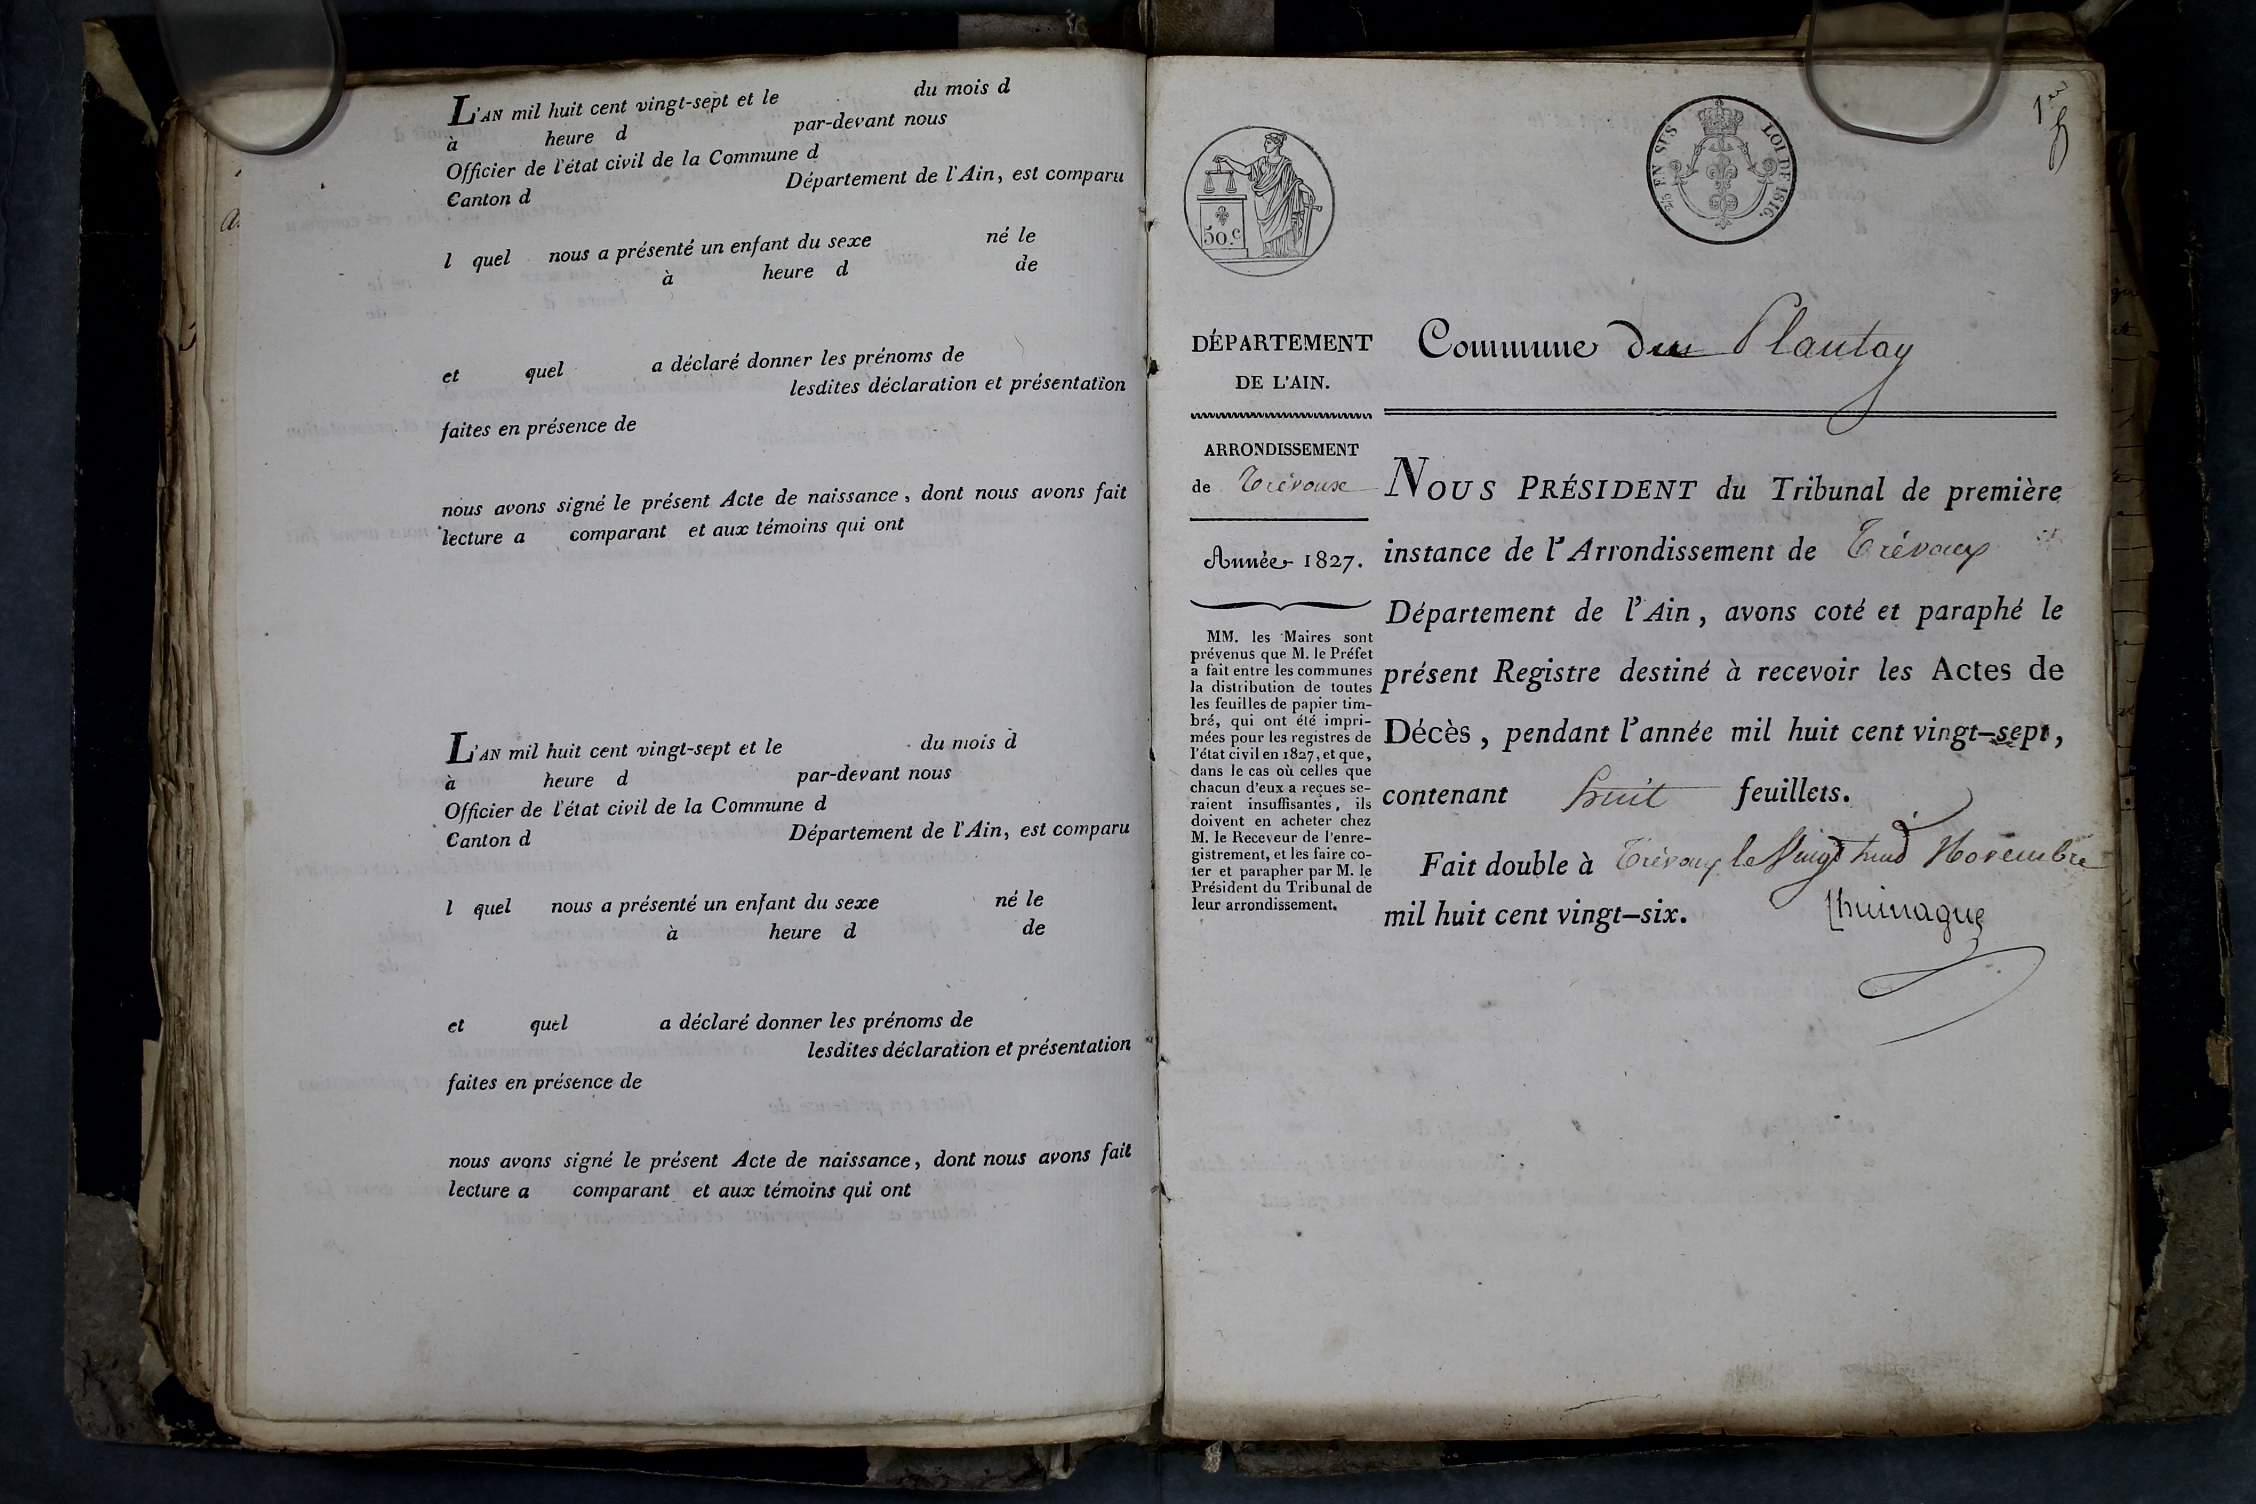 L'AN mil huit cent vingt-sept et le du mois d
à heure d par-devant nous
Officier de l'état civil de la Commune d
Canton d Département de l'Ain, est comparu
l quel nous a présenté un enfant du sexe né le
à heure d de
et quel a déclaré donner les prénoms de
lesdites déclaration et présentation
faites en présence de
nous avons signé le présent Acte de naissance, dont nous avons fait
lecture a comparant et aux témoins qui ont
L'AN mil huit cent vingt-sept et le du mois d
à heure d par-devant nous
Officier de l'état civil de la Commune d
Canton d Département de l'Ain, est comparu
l quel nous a présenté un enfant du sexe né le
à heure d de
et quel a déclaré donner les prénoms de
lesdites déclaration et présentation
faites en présence de
nous avons signé le présent Acte de naissance, dont nous avons fait
lecture a comparant et aux témoins qui ont
1er
50.c
25 EN SUS LOI DE 1816.
DÉPARTEMENT
DE L'AIN.
ARRONDISSEMENT
de Trévoux
Année 1827.
MM. les Maires sont
prévenus que M. le Préfet
a fait entre les communes
la distribution de toutes
les feuilles de papier tim-
bré, qui ont été impri-
mées pour les registres de
l'état civil en 1827, et que,
dans le cas où celles que
chacun d'eux a reçues se-
raient insuffisantes, ils
doivent en acheter chez
M. le Receveur de l'enre-
gistrement, et les faire co-
ter et parapher par M. le
Président du Tribunal de
leur arrondissement.
Commune du Plantay
NOUS PRÉSIDENT du Tribunal de première
instance de l'Arrondissement de Trévoux
Département de l'Ain, avons coté et paraphé le
présent Registre destiné à recevoir les Actes de
Décès, pendant l'année mil huit cent vingt-sept,
contenant huit feuillets.
Fait double à Trévoux le Vingt huit Novembre
mil huit cent vingt-six.